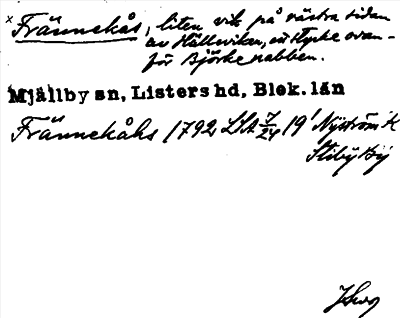 x Frännekås, liten vik på västra sidan
av Hälleviken, ett stycke ovan-
för Björkenabben.
Mjällby sn, Listers hd, Blek. län
Frännekåhs 1792 LSA 7/24 19' Nyström K
Stiby By